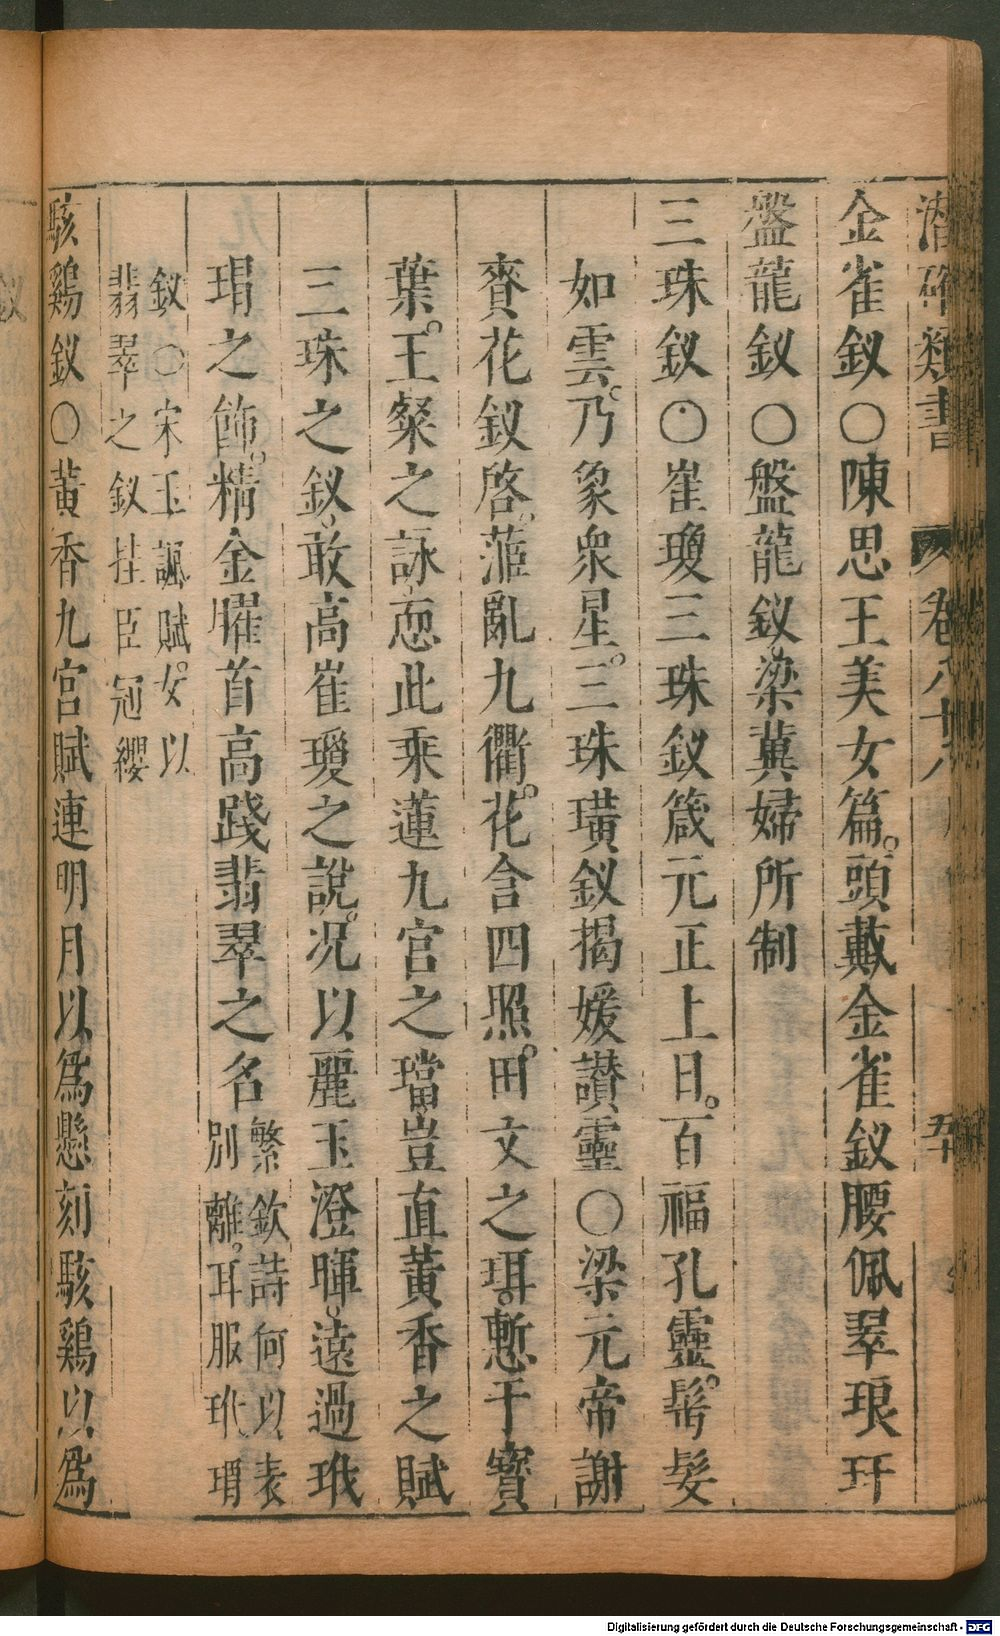 潛確類書 卷八十八 五十
金雀釵○陳思王美女篇。頭戴金雀釵腰佩翠琅玕
盤龍釵○盤龍釵。梁冀婦所制
三珠釵○崔瓊三珠釵箴元正上日。百福孔靈。髩髮
如雲。乃象衆星。三珠璜釵揭媛讃靈○梁元帝謝
賚花釵啓。蒞亂九衢。花含四照。田文之珥。慙于寳
葉。王粲之詠。恧此乘蓮九宮之璫豈直黃香之賦
三珠之釵。敢高崔瑷之說。况以麗玉澄暉。遠過玳
瑁之飾。精金曜首高踐翡翠之名
繁欽詩何以表
別離。耳服玳瑁
釵○宋玉諷賦。女以
翡翠之釵挂臣冠纓
駭鷄釵○黃香九宮賦連明月以爲懸刻駭鷄以爲
Digitalisierung gefördert durch die Deutsche Forschungsgemeinschaft - DFG